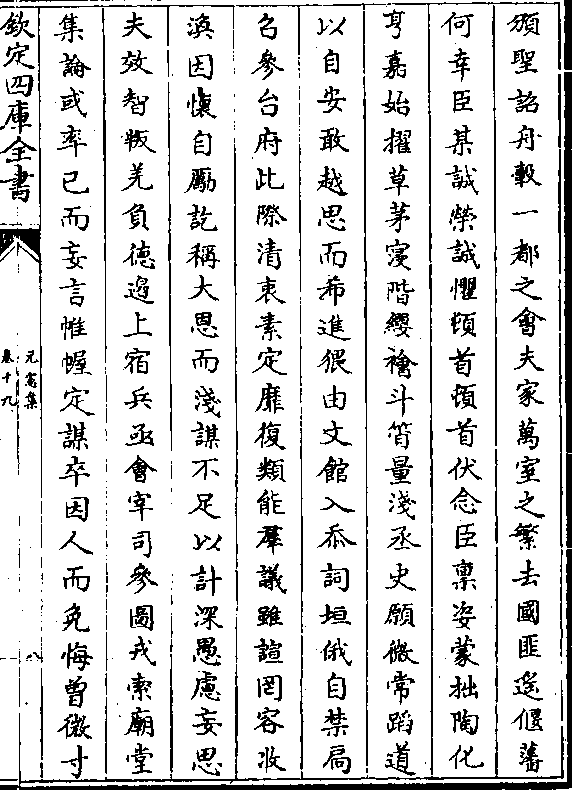 頒聖詔舟轂一都之會夫家萬室之繁去國匪遙偃藩
何幸臣某誠榮誠懼頓首頓首伏念臣禀姿蒙拙陶化
亨嘉始擢草茅寖階纓襘斗筲量淺丞史願微常蹈道
以自安敢越思而希進猥由文館入忝詞垣俄自禁扃
召參台府此際清衷素定靡復類能羣議雖諠罔容收
渙因懷自勵訖稱大恩而淺謀不足以計深愚慮妄思
夫效智叛羌負德邉上宿兵亟會宰司參圖戎索廟堂
集論或率已而妄言帷幄定謀卒因人而免悔曽微寸
欽定四庫全書
元憲集
卷十九
八